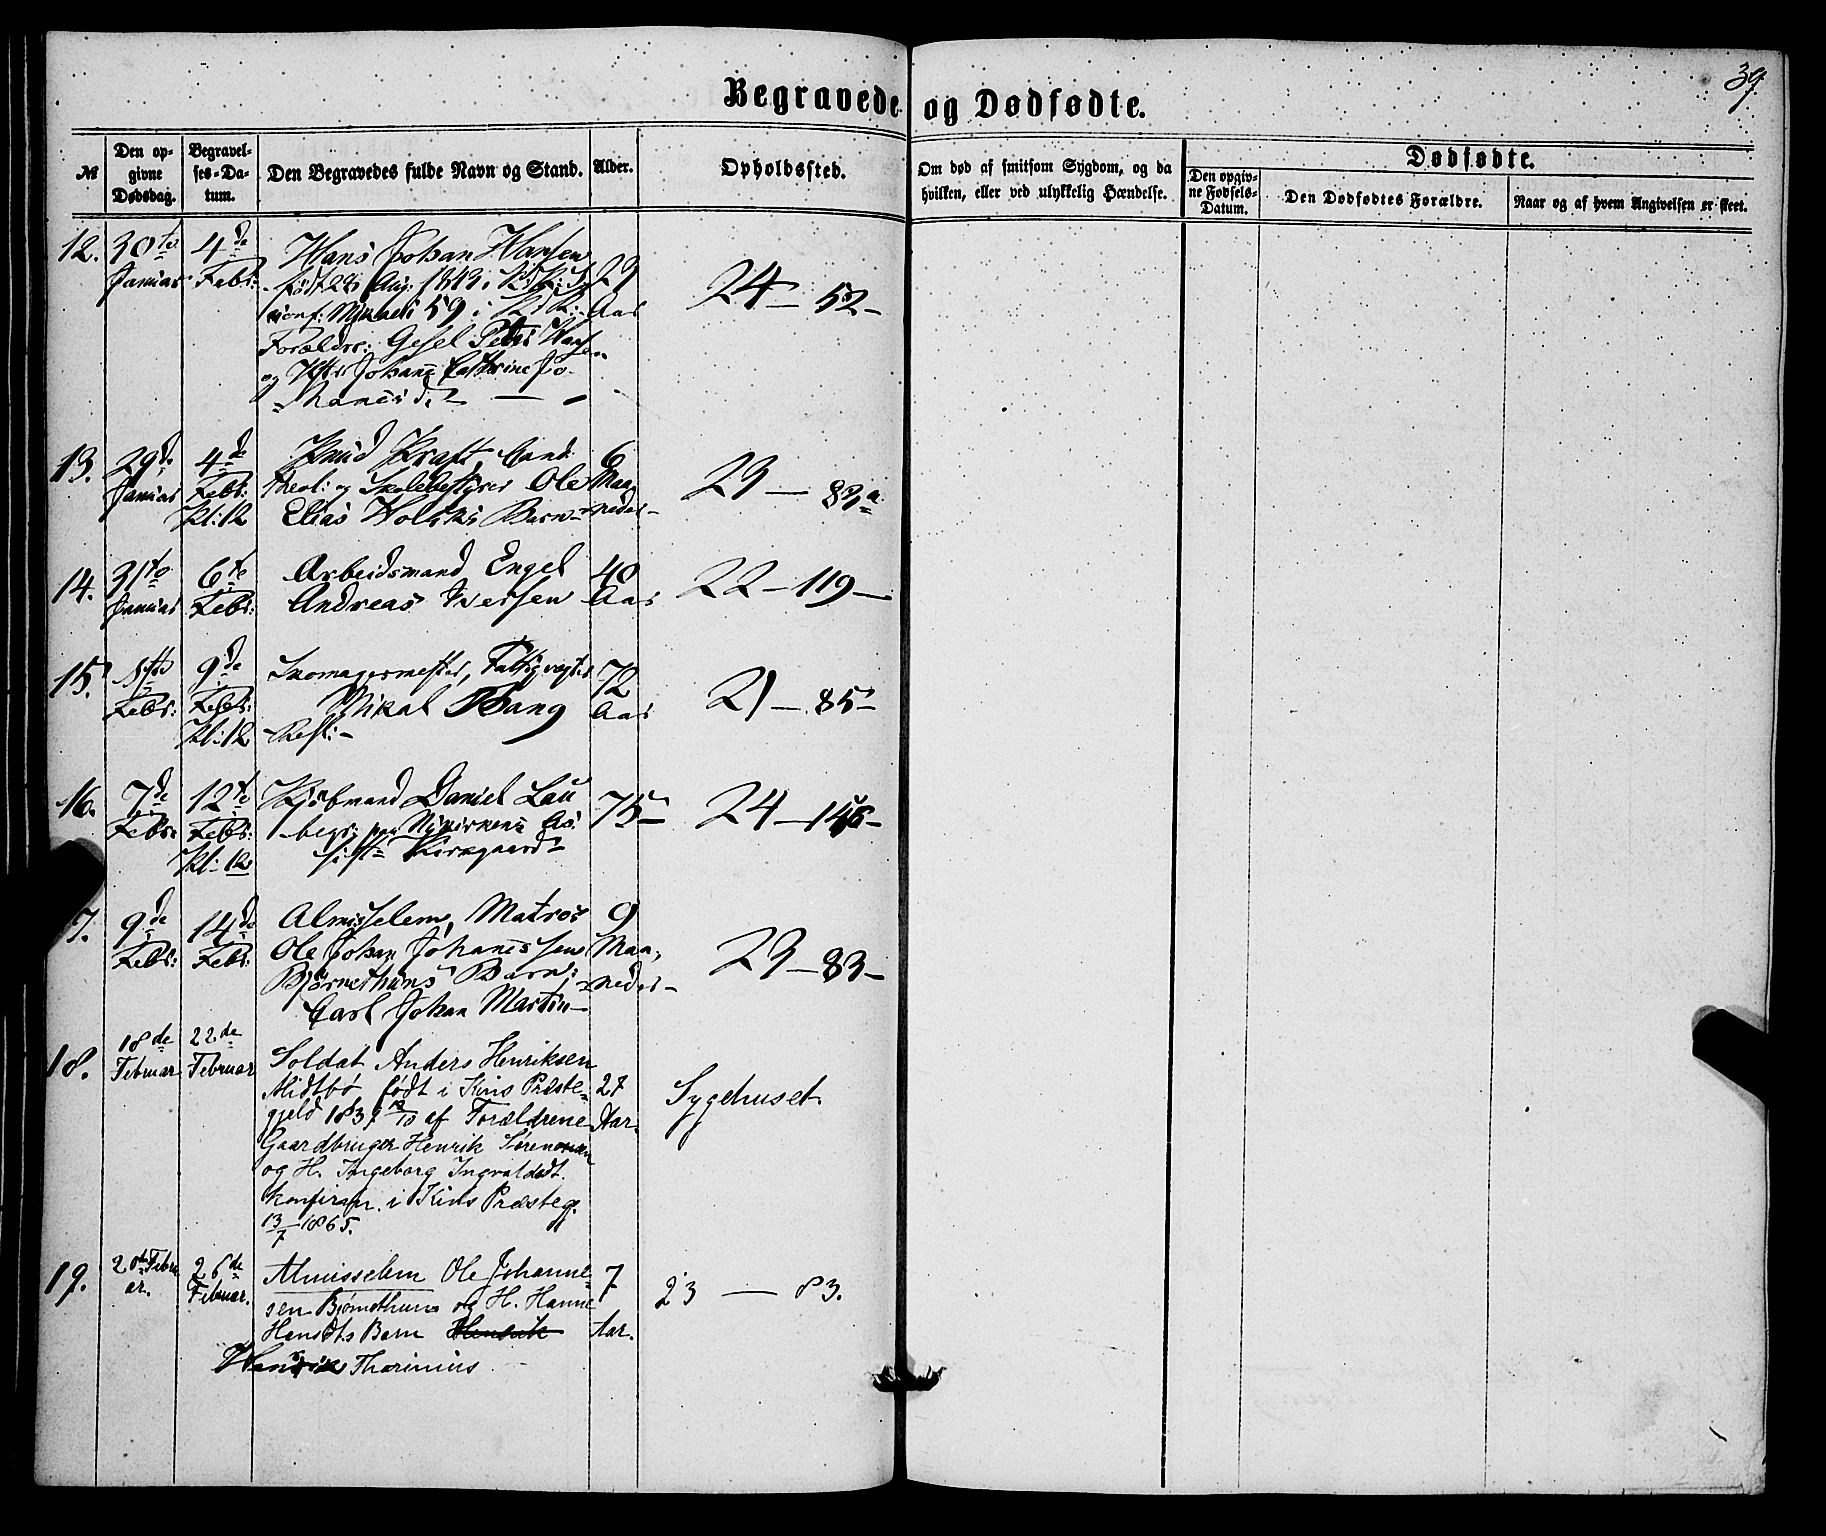 39.
Begravede og Dødfødte.
№
Den opgivne Dødsdag.
Begravelses-Datum.
Den Begravedes fulde Navn og Stand.
Alder.
Opholdssted.
Om død af smitsom Sygdom, og da hvilken, eller ved ulykkelig Hændelse.
Dødfødte.
Den opgivne Fødsels-Datum.
Den Dødfødtes Forældre.
Naar og af hvem Angivelsen er skeet.
12. 30te 4de Hans Johan Hansen
Januar Febr: født 28 Aug: 1843 i
conf: i 59 i Aar 24 - 52 -
Forældre: Gesel Peter Hansen
og Johane Cathrine Jo-
hanesd.
13. 29de 4de Knud Kraft, Cand: 6
Januar Febr: theol: og Skolebestyrer Ole Maa- 23 - 83a
Kl: 12 Elias Holcks Barn - neder -
14. 31te 6te Arbeidsmand Engel 40 22 - 119 -
Januar Febr: Andreas Iversen Aar
15. 9de Skomagermester, Fattigvogter 72
Febr: Febr: Mikal Bang Aar 21 - 85 -
Kl: 12
16. 7de 12te Kjøbmand Daniel Lau 75 - 24 -
Febr: Febr: begr: paa Nykirkens As-
Kl: 12 sist: Kirkegaard
17. 9de 14de Almisselem, Matros 9
Febr: Febr: Ole Johan Johanessen Maa- 23 - 83 -
Bjørnethuns Barn; neder -
Carl Johan Martin -
18. 18de 22de
Februar Februar Soldat Anders Henriksen
Midtbø født i Kins Præste- 27 Sygehuset.
gjeld 183 af Forældrene Aar.
Gaardbruger Henrik
og H. Ingeborg Ingvaldsdt.
konfirm. i Kins Præsteg.
13/7 1865.
19. Febru- 26de Almisselem Ole Johanne- 7
ar. Februar. sen Bjørnethun og H. Hanne 23 — 83.
Hansdts Barn Henrik Aar.
Henrik Thorinius